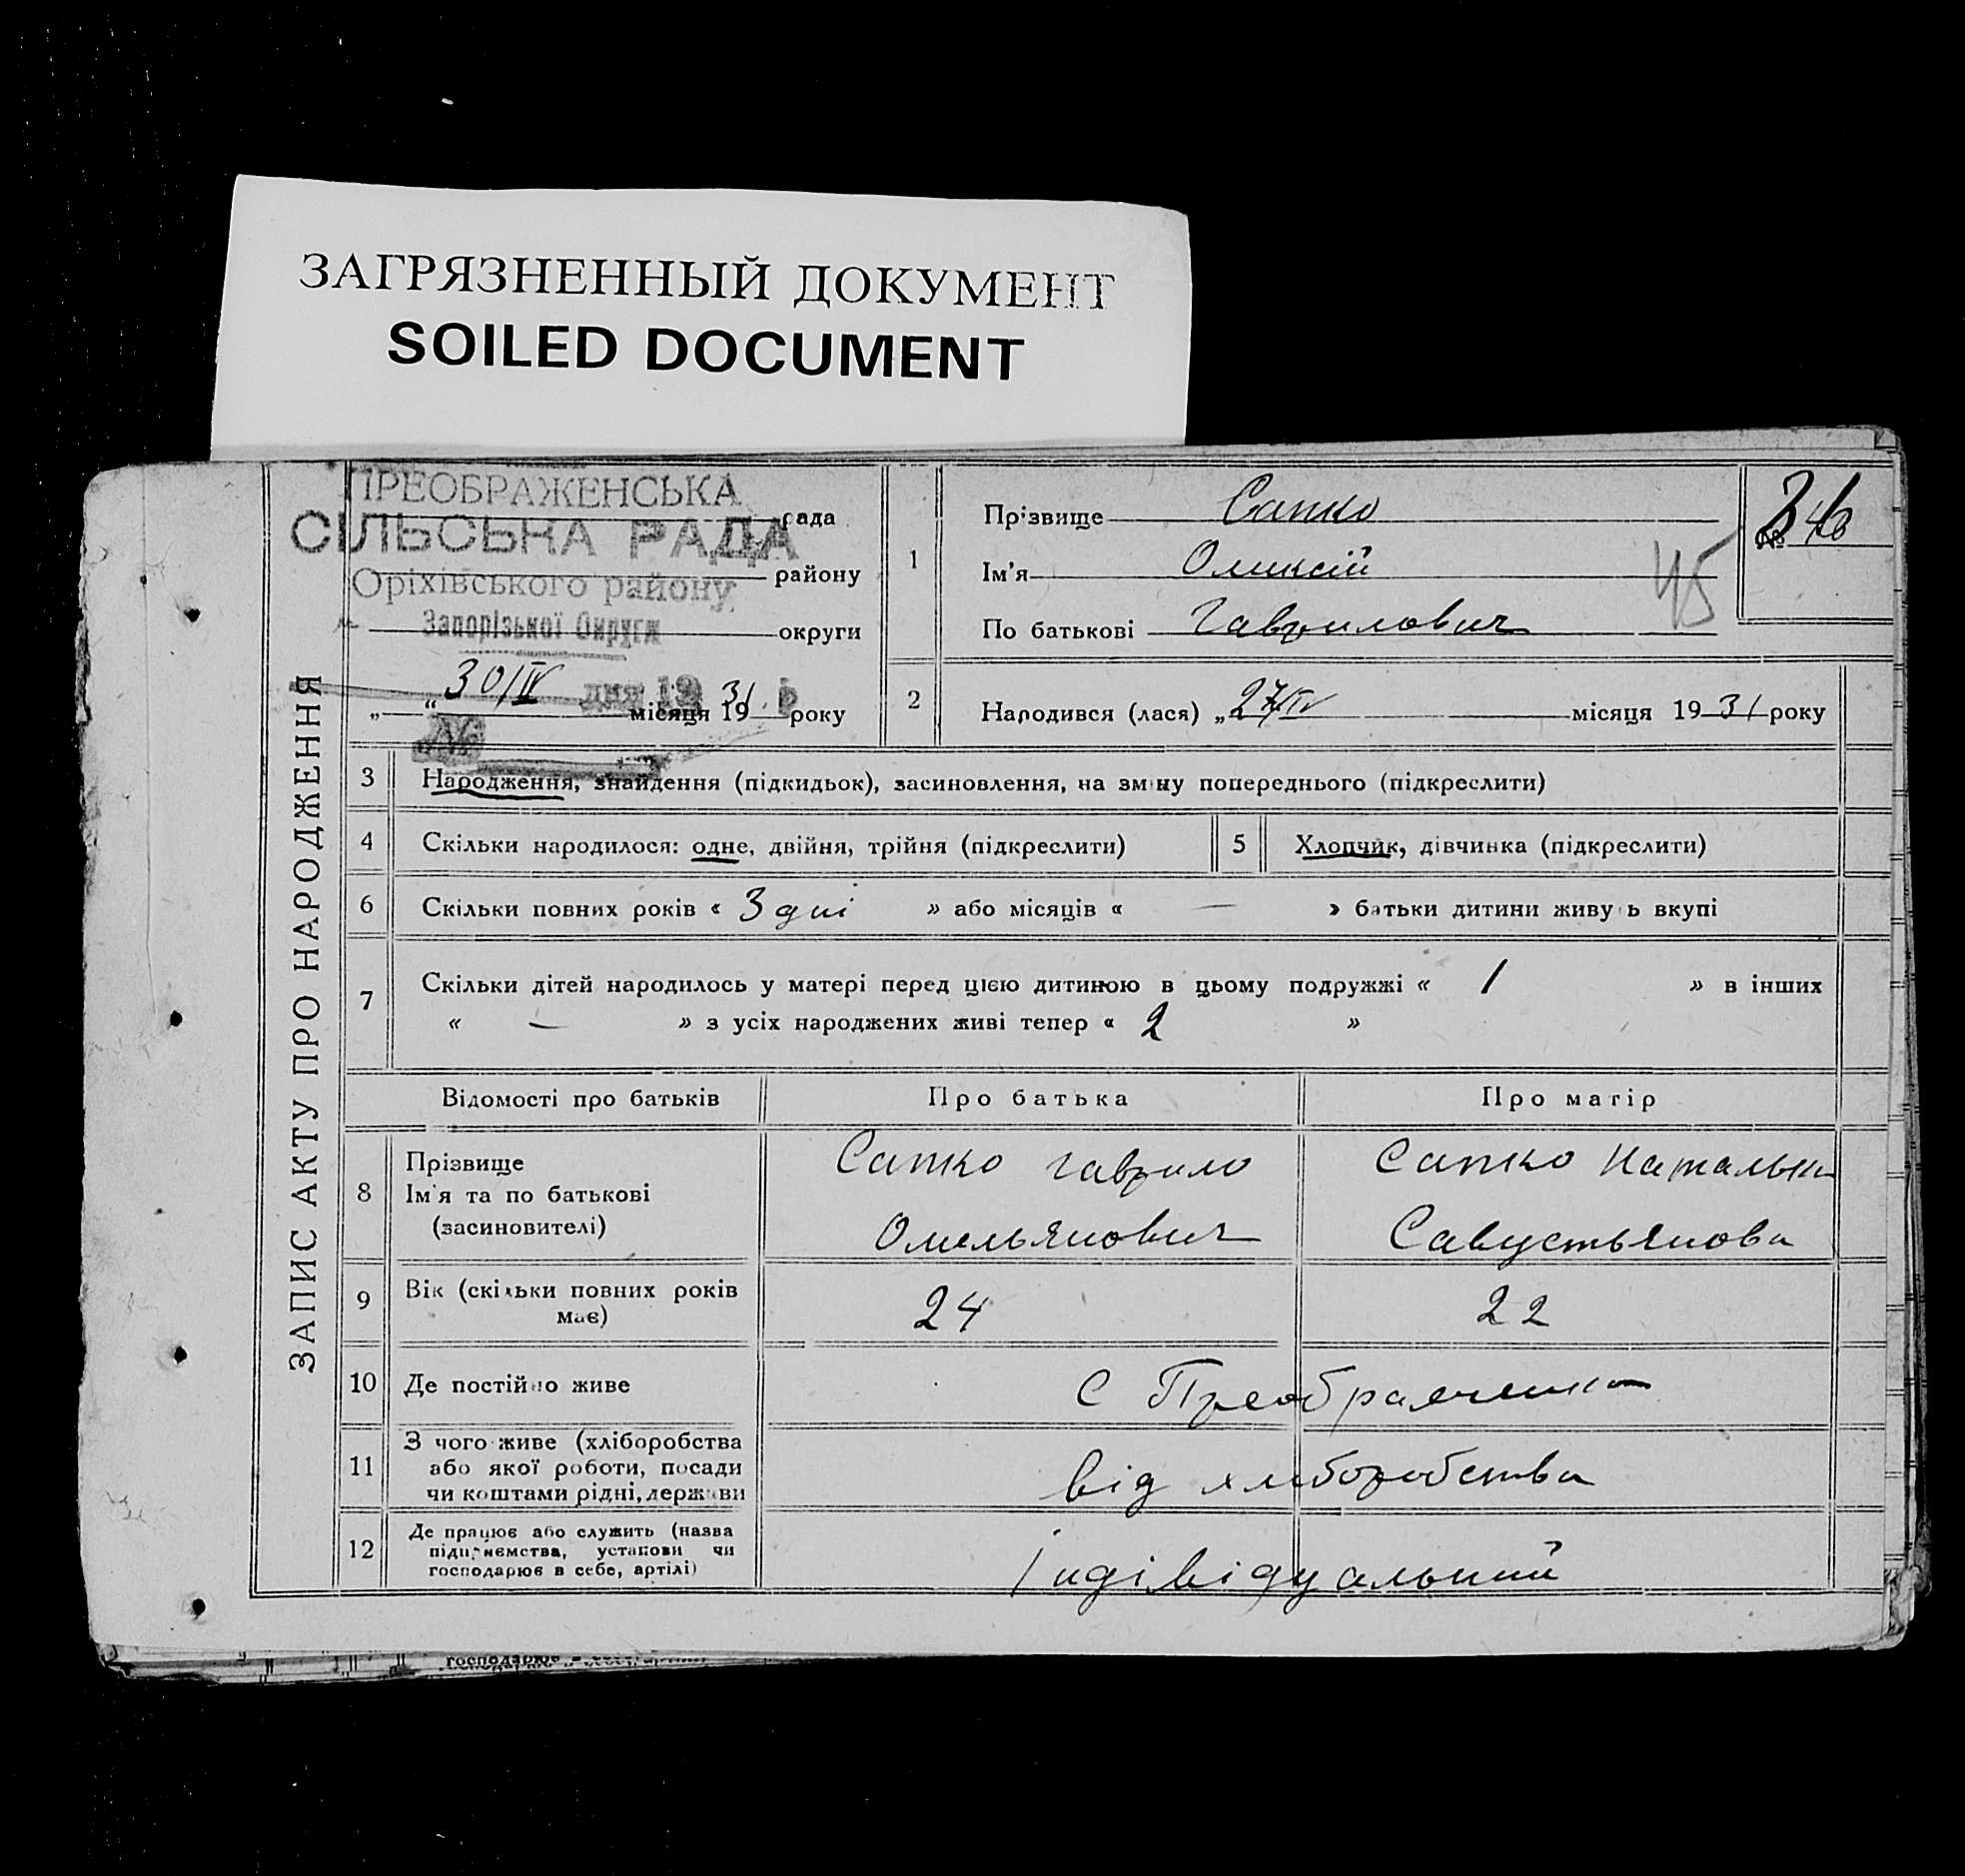 ЗАГРЯЗНЕННЫЙ ДОКУМЕНТ
SOILED DOCUMENT
ЗАПИС АКТУ ПРО НАРОДЖЕННЯ
ПРЕОБРАЖЕНСЬКА
СІЛЬСЬКА РАДА рада
Оріхівського району району
Запорізької Округи округи
30/IV дня 19 31 р
„ “ місяця 19 року
№
1 Прізвище Сапко
Ім'я Оликсій
По батькові Гаврилович
№ 46
45
2 Народився (лася) „27/IV місяця 19 31 року
3 Народження, знайдення (підкидьок), засиновлення, на зміну попереднього (підкреслити)
4 Скільки народилося: одне, двійня, трійня (підкреслити)
5 Хлопчик, дівчинка (підкреслити)
6 Скільки повних років « 3 дні » або місяців « — » батьки дитини живуть вкупі
7 Скільки дітей народилось у матері перед цією дитиною в цьому подружжі « 1 » в інших
« — » з усіх народжених живі тепер « 2 »
Відомості про батьків Про батька Про матір
8 Прізвище
Ім'я та по батькові
(засиновителі)
Сапко Гаврило
Омельянович
Сапко Наталья
Савустьянова
9 Вік (скільки повних років
має)
24
22
10 Де постійно живе
С Преображенка
11 З чого живе (хліборобства
або якої роботи, посади
чи коштами рідні, держави
від хліборобства
12 Де працює або служить (назва
підприємства, установи чи
господарює в себе, артілі)
Індівідуальний